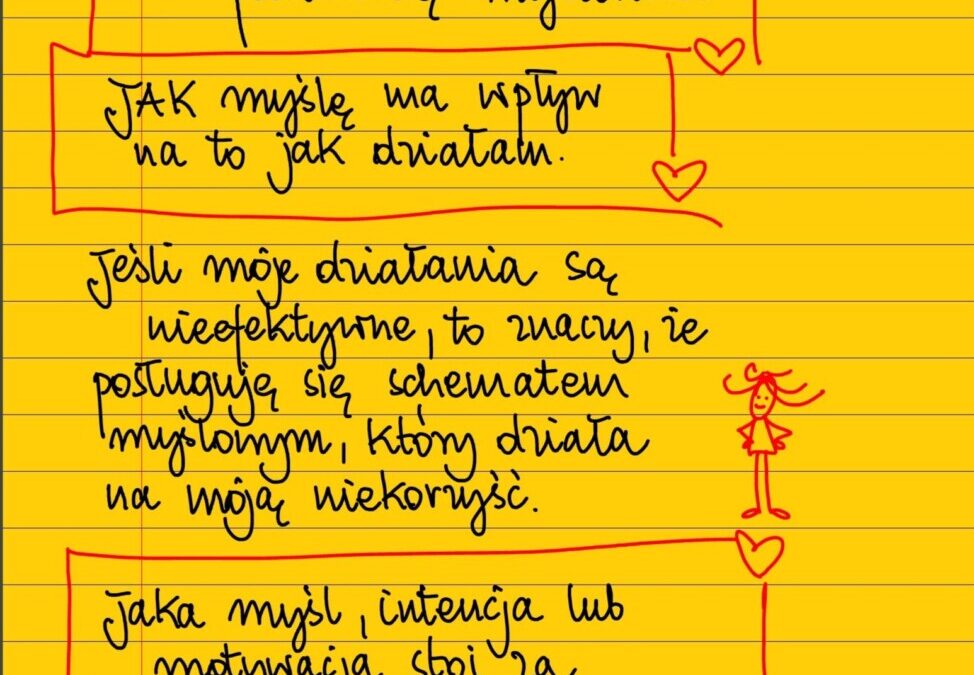 JAK myślę ma wpływ
na to jak działam.
Jeśli moje działania są
nieefektywne, to znaczy, że
posługuję się schematem
myślowym, który działa
na moją niekorzyść.
Jaka myśl, intencja lub
motywacja stoi za